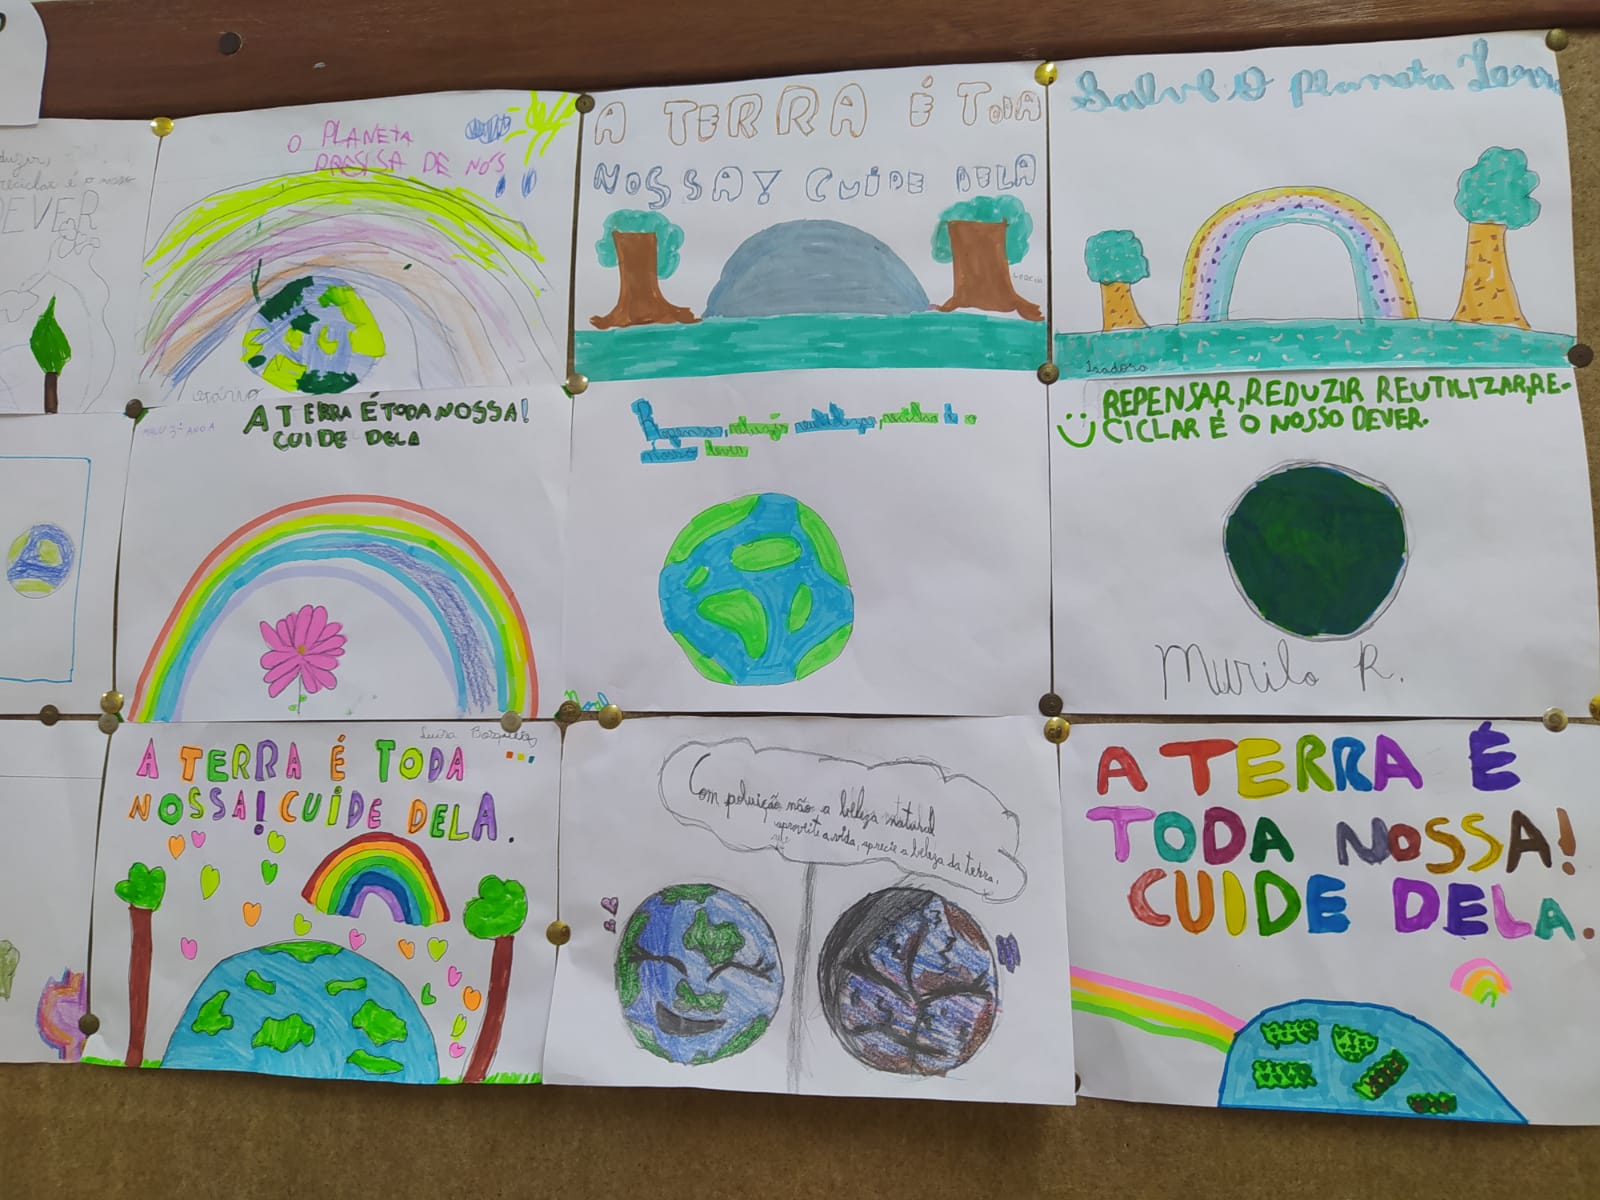 reciclar é o nosso
DEVER
O PLANETA
PRESISA DE NÓS
A TERRA É TODA
NOSSA! CUIDE DELA
LORENA
Salve O planeta Terra
Isadora
3º ANO A
A TERRA É TODA NOSSA!
CUIDE DELA
Repensar, reduzir, reutilizar, reciclar é o
nosso dever
REPENSAR, REDUZIR REUTILIZAR, RE-
CICLAR É O NOSSO DEVER.
Murilo R.
Luisa
A TERRA É TODA
NOSSA! CUIDE DELA.
Com poluição não a beleza natural
aproveite a vida, aprecie a beleza da terra.
A TERRA É
TODA NOSSA!
CUIDE DELA.